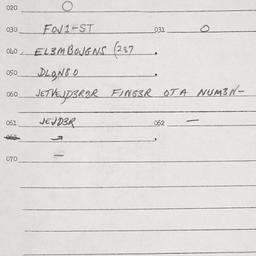 020 O
030 FOJ1-ST 031 O
040 EL3MBOJGNS (287 .
050 DLQNGO .
060 JETVEJD3R3R FING3R OTA NUM3N-
061 JEJD3R 062 –
063 → .
070 –